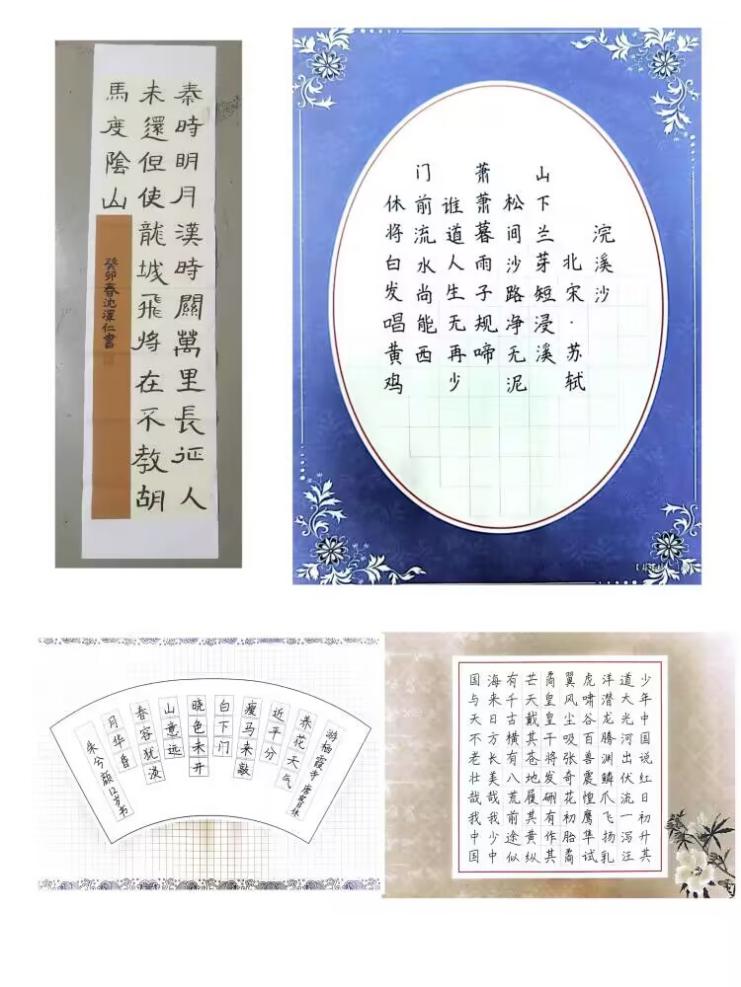 秦時明月漢時關萬里長征人
未還但使龍城飛將在不教胡
馬度陰山
癸卯春沈澤仁書
浣溪沙
北宋·苏轼
山下兰芽短浸溪
松间沙路净无泥
萧萧暮雨子规啼
谁道人生无再少
门前流水尚能西
休将白发唱黄鸡
游栖霞寺
养花天气
近平分
瘦马来敲
白下门
晓色未开
山意远
春容犹淡
月华昏
朱兮颐12岁书
少年中国说红日初升其
道大光河出伏流一泻汪
洋潜龙腾渊鳞爪飞扬乳
虎啸谷百兽震惶鹰隼试
翼风尘吸张奇花初胎矞
矞皇皇干将发硎有作其
芒天戴其苍地履其黄纵
有千古横有八荒前途似
海来日方长美哉我少中
国与天不老壮哉我中国